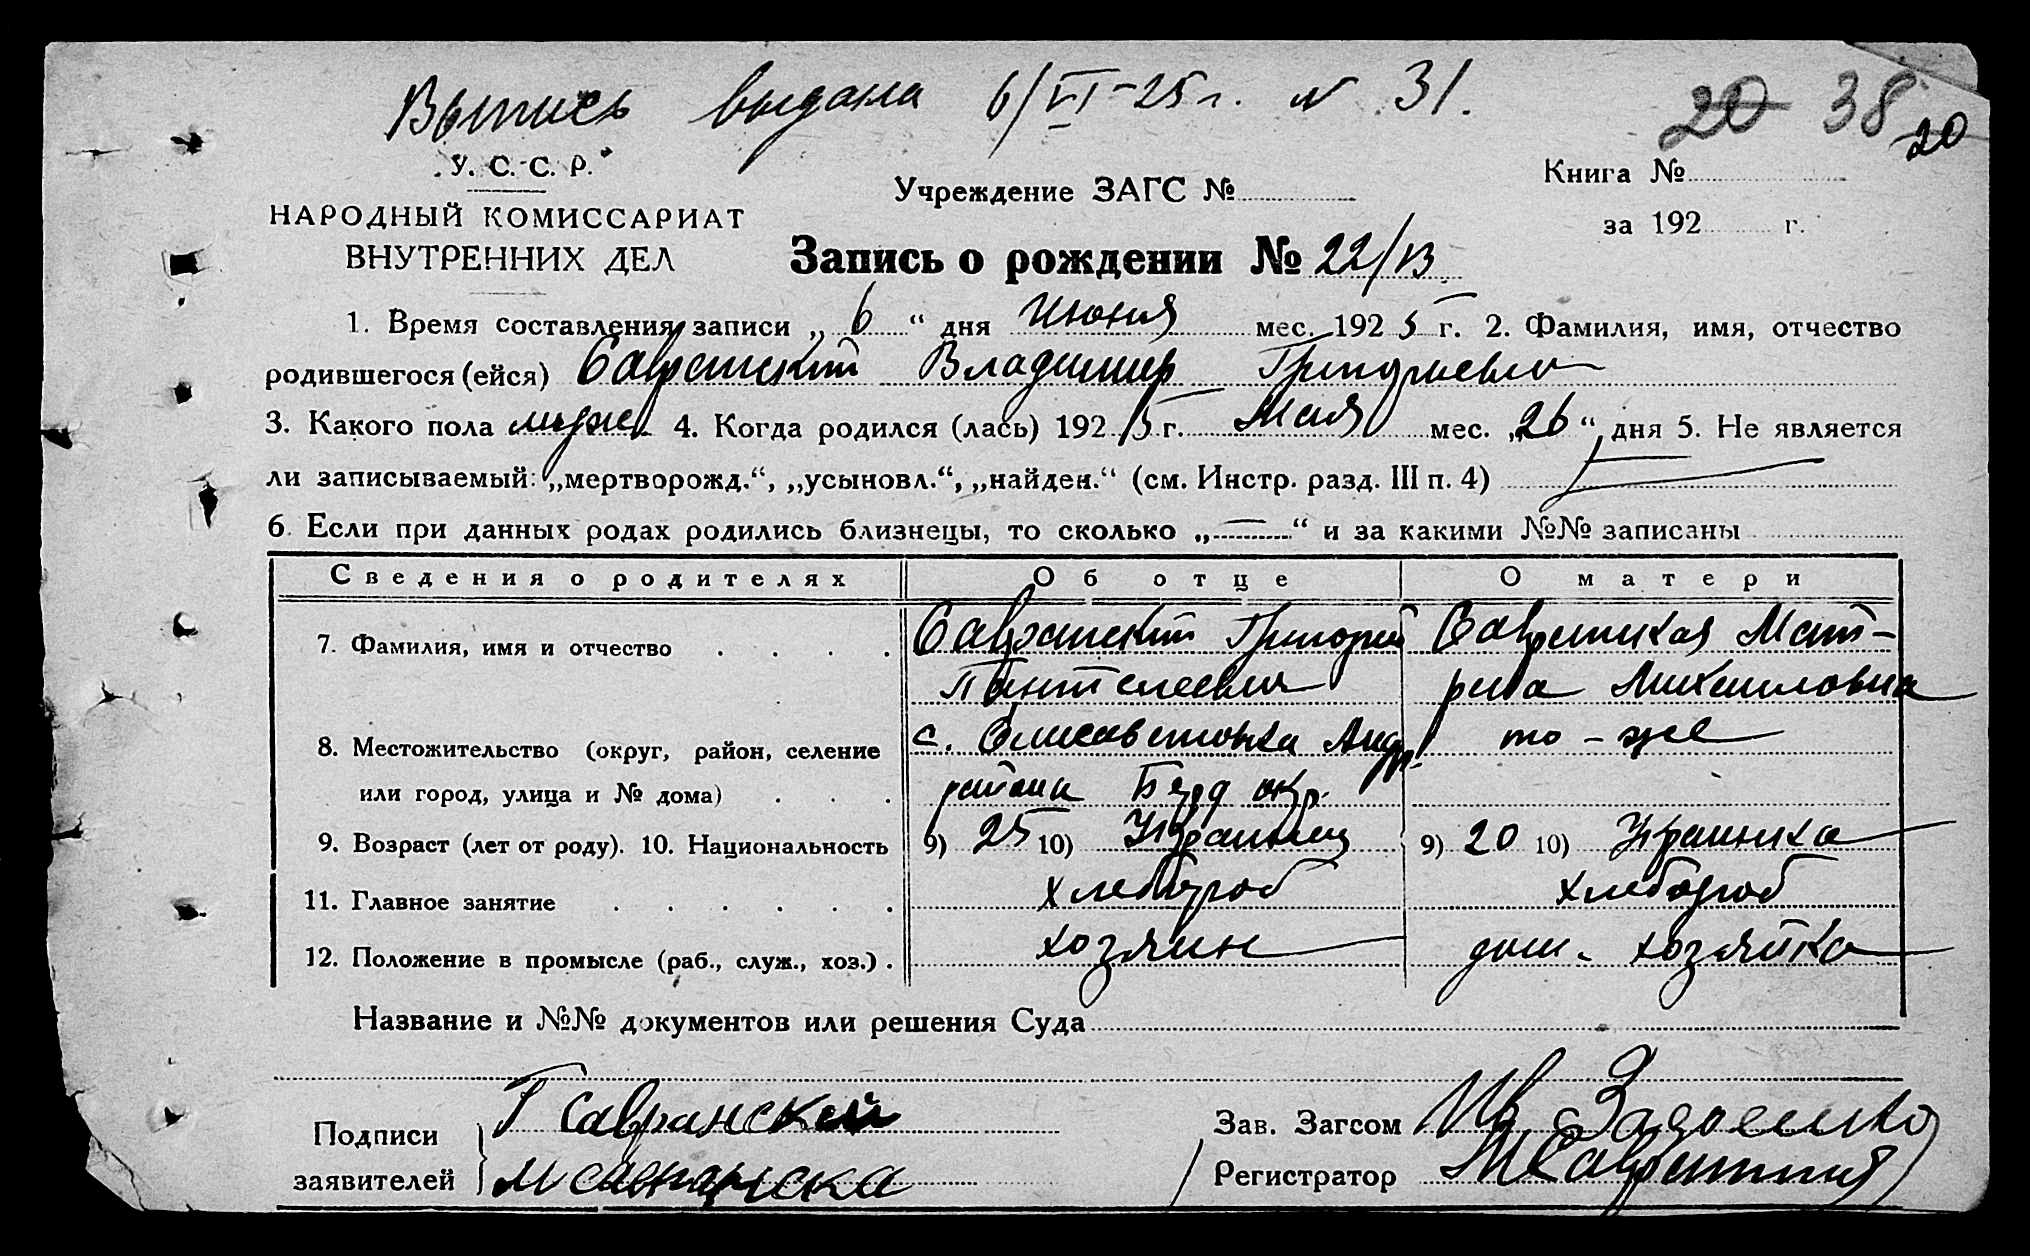 Выпись выдана 6/VI-25 г. N 31.
20 38 20
У. С. С. Р.
НАРОДНЫЙ КОМИССАРИАТ
ВНУТРЕННИХ ДЕЛ
Учреждение ЗАГС №
Книга №
за 192 г.
Запись о рождении № 22/13
1. Время составления записи „ 6 “ дня Июня мес. 192 5 г. 2. Фамилия, имя, отчество
родившегося (ейся) Савранский Владимир Григорьевич
3. Какого пола муж. 4. Когда родился (лась) 192 5 г. Мая мес. „26“ дня 5. Не является
ли записываемый: „мертворожд.“, „усыновл.“, „найден.“ (см. Инстр. разд. III п. 4)
6. Если при данных родах родились близнецы, то сколько „—“ и за какими №№ записаны
Сведения о родителях Об отце О матери
7. Фамилия, имя и отчество . . . . Савранский Григорий Савранская Мат-
Пантелеевич рена Михайловна
8. Местожительство (округ, район, селение с. Елисаветовка Андр. то-же
или город, улица и № дома) . . . района Берд окр.
9. Возраст (лет от роду). 10. Национальность 9) 25 10) Украинец 9) 20 10) Украинка
11. Главное занятие . . . . . . хлебороб хлебороб
12. Положение в промысле (раб., служ., хоз.) . хозяин дом. хозяйка
Название и №№ документов или решения Суда
Подписи
заявителей
Г Савранский
М савранска
Зав. Загсом
Регистратор МСавранский